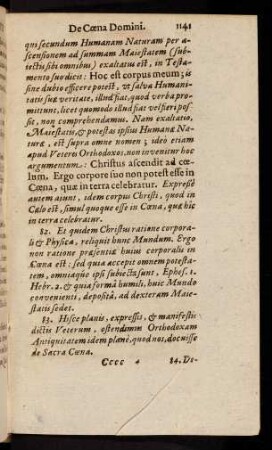 De Cœna Domini. 1141
qui secundum Humanam Naturam per a-
scensionem ad summam Maiestatem (sub-
iectis sibi omnibus) exaltatus est, in Testa-
mento suo dicit: Hoc est corpus meum; is
sine dubio efficere potest, vt salva Humani-
tatis suæ veritate, illud fiat, quod verba pro-
mittunt, licet quomodo illud fiat vel fieri pos-
sit, non comprehendamus. Nam exaltatio,
Maiestatis, & potestas ipsius Humanæ Natu-
ræ, est supra omne nomen; ideo etiam
apud Veteres Orthodoxos, non invenitur hoc
argumentum: Christus ascendit ad cœ-
lum. Ergo corpore suo non potest esse in
Cœna, quæ in terra celebratur. Expresse
autem aiunt, idem corpus Christi, quod in
Cælo est, simul quoque esse in Cœna, quæ hîc
in terra celebratur.
82. Et quidem Christus ratione corpora-
li & Physica, reliquit hunc Mundum. Ergo
non ratione præsentiæ huius corporalis in
Cœna est: sed qua accepit omnem potesta-
tem, omniaq́ue ipsi subiecta sunt, Ephes. 1.
Hebr. 2. & qui a forma humili, huic Mundo
convenienti, depositâ, ad dexteram Maie-
statis sedet.
83. Hisce planis, expressis, & manifestis
dictis Veterum, ostendimus Orthodoxam
Antiquitatem idem planè, quod nos, docuisse
de Sacra Cœna.
Cccc 4 84. De-